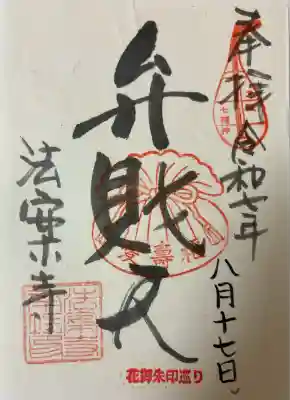 奉拝 令和七年
八月十七日
七福神
弁財天
福寿
法案寺
花御朱印巡り